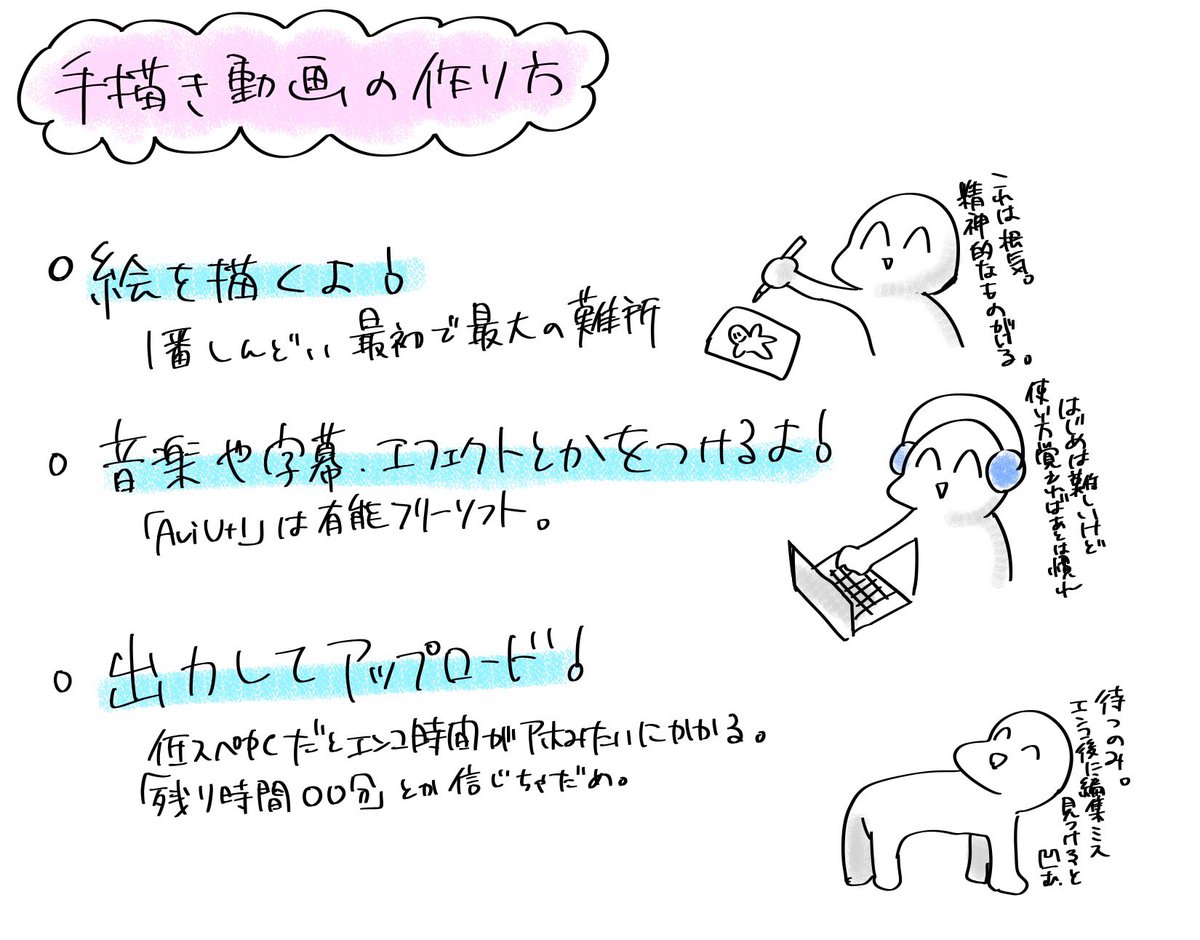 手描き動画の作り方
○ 絵を描くよ!
1番しんどい最初で最大の難所
これは根気。
精神的なものがいる。
○ 音楽や字幕.エフェクトとかをつけるよ!
「AviUtl」は有能フリーソフト。
はじめは難しいけど
使い方覚えればあとは慣れ
○ 出力してアップロード!
低スペPCだとエンコ時間がアホみたいにかかる。
「残り時間〇〇分」とか信じちゃだめ。
待つのみ。
エンコ後に編集ミス
見つけると
凹む.